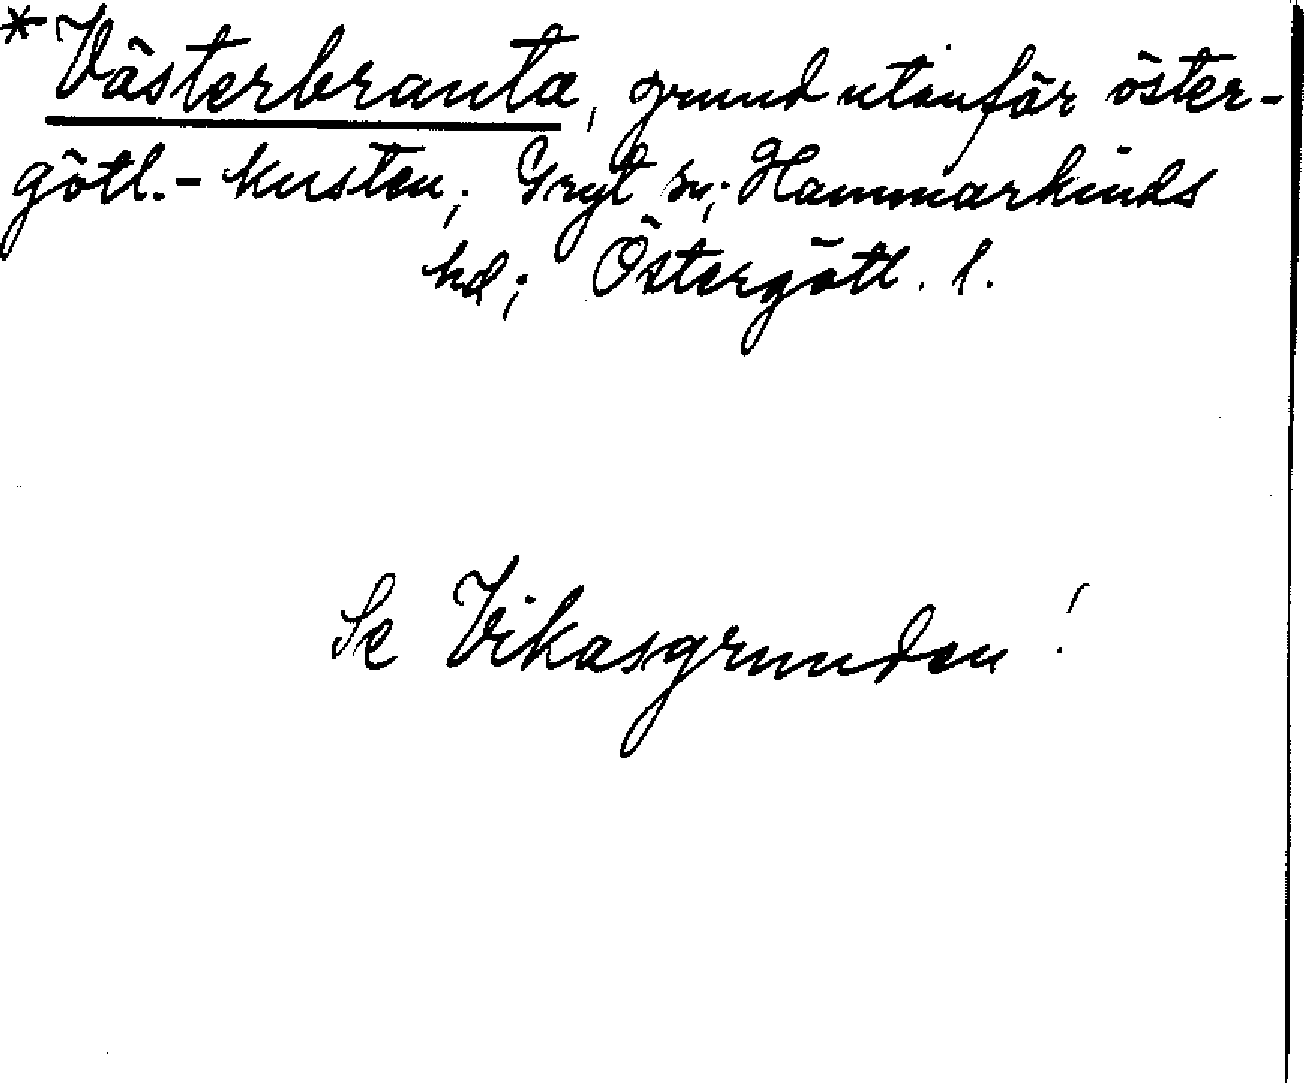 *Västerbranta, grund utanför öster-
götl.-kusten; Gryt sn; Hammarkinds
hd; Östergötl. l.
Se Vikasgrunden!